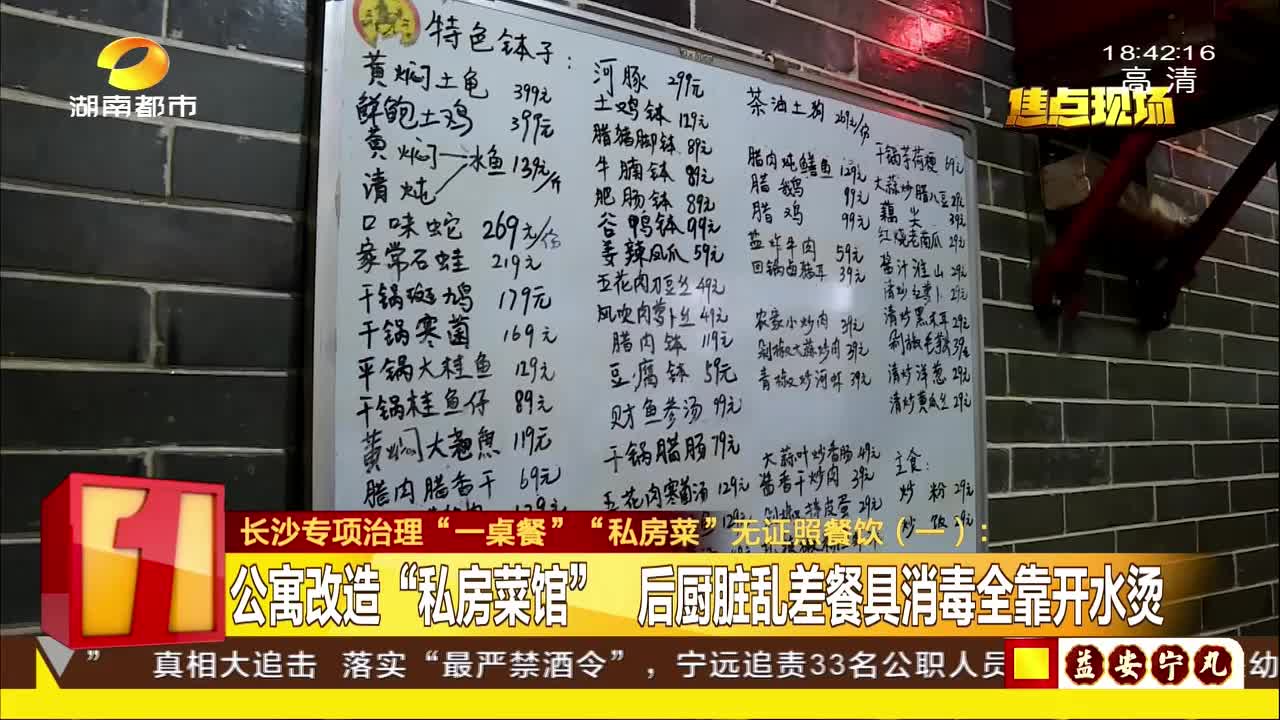 湖南都市
18:42:16
高清
焦点现场
特色钵子：
黄焖土龟 399元
鲜鲍土鸡 399元
黄焖
清炖
水鱼 139元/斤
口味蛇 269元/份
家常石蛙 219元
干锅斑鸠 179元
干锅寒菌 169元
平锅大桂鱼 129元
干锅桂鱼仔 89元
黄焖大翘鱼 119元
腊肉腊香干 69元
河豚 299元
土鸡钵 129元
腊猪脚钵 89元
牛腩钵 89元
肥肠钵 89元
谷鸭钵 99元
姜辣凤爪 59元
五花肉刀豆丝 49元
风吹肉萝卜丝 49元
腊肉钵 119元
豆腐钵 59元
财鱼参汤 99元
干锅腊肠 79元
五花肉寒菌汤 129元
茶油土狗 269元/份
腊肉炖鳝鱼 129元
腊鹅 99元
腊鸡 99元
盐炸牛肉 59元
回锅卤猪耳 39元
农家小炒肉 39元
剁椒大蒜炒肉 39元
青椒炒河虾 39元
大蒜叶炒香肠 49元
酱香干炒肉 39元
皮蛋 29元
干锅芋荷梗 69元
大蒜炒腊八豆 29元
藕尖 39元
红烧老南瓜 29元
酱汁淮山 29元
清炒红萝卜 29元
清炒黑木耳 29元
剁椒毛芋 39元
清炒洋葱 29元
清炒黄瓜丝 29元
主食：
炒粉 29元
炒饭 29元
长沙专项治理“一桌餐”“私房菜”无证照餐饮（一）：
公寓改造“私房菜馆” 后厨脏乱差餐具消毒全靠开水烫
” 真相大追击 落实“最严禁酒令”，宁远追责33名公职人员
益安宁丸
幼